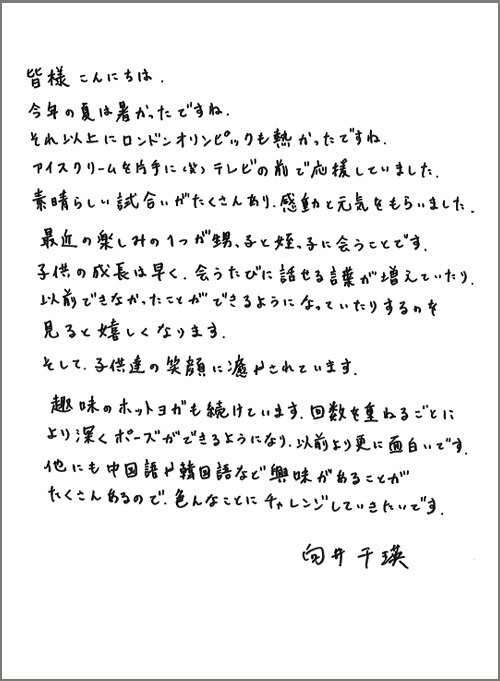 皆様こんにちは.
今年の夏は暑かったですね.
それ以上にロンドンオリンピックも熱かったですね.
アイスクリームを片手に(笑)テレビの前で応援していました.
素晴らしい試合いがたくさんあり、感動と元気をもらいました.
最近の楽しみの1つが甥っ子と姪っ子に会うことです.
子供の成長は早く、会うたびに話せる言葉が増えていたり、
以前できなかったことができるようになっていたりするのを
見ると嬉しくなります.
そして、子供達の笑顔に癒やされています.
趣味のホットヨガも続けています.回数を重ねるごとに
より深くポーズができるようになり、以前より更に面白いです.
他にも中国語や韓国語など興味があることが
たくさんあるので、色んなことにチャレンジしていきたいです.
向井千瑛